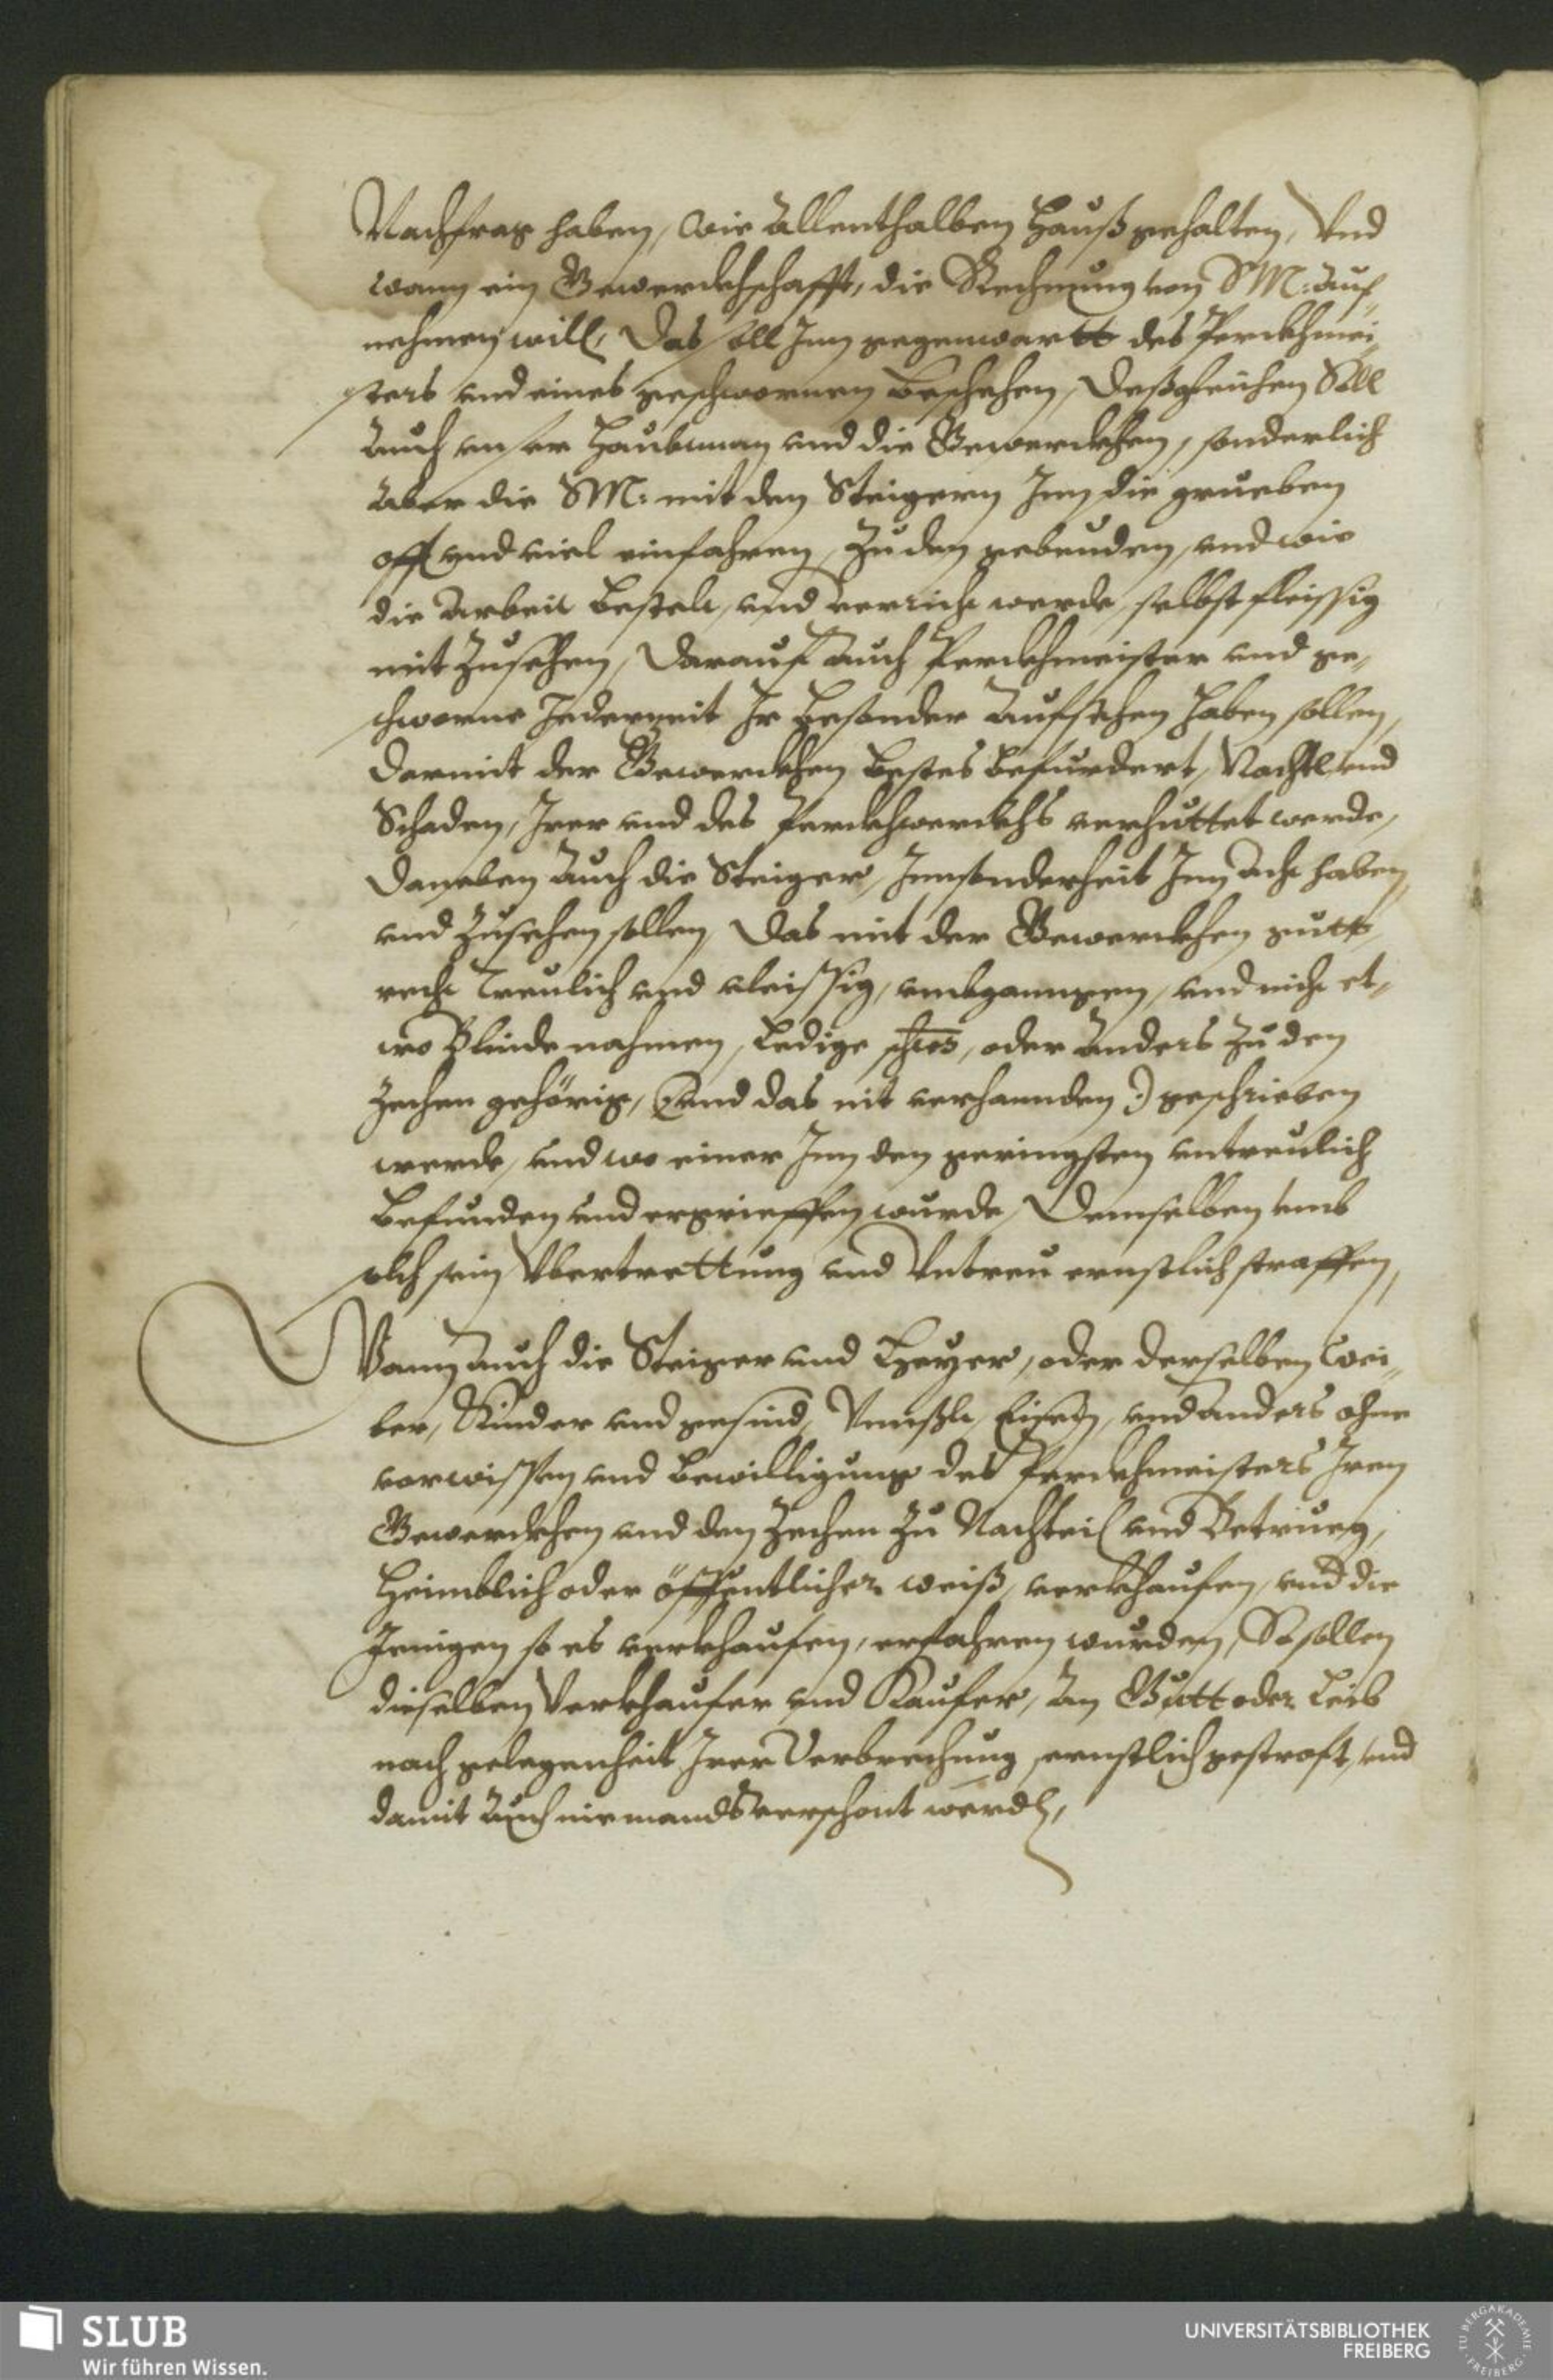 Nachfrag haben, wie Allenthalben Hauß gehalten, Vnd
wann ein Gewerckhschafft, die Rechnung von SM: auf-
nehmen will, Das soll Inn gegenwartt des Perckhmei-
sters vnd eines geschwornen beschehen, Desgleichen Soll
Auch vnser Haubtman vnd die Gewerckhen, sonderlich
Aber die SM: mit den Steigern Inn die grueben
offt vnd viel einfahren, Zu den gebeuden, vnd wie
die Arbeit bestelt, vnd verricht werde, selbst fleissig
mit Zusehen, Darauf Auch Perckhmeister vnd ge-
schworne Jederzeit Ir besonder Aufsehen haben sollen,
Darmit der Gewerckhen bestes befurdert, Nachtl vnd
Schaden, Irer vnd des Perckhwerckhs verhuttet werde,
Daneben Auch die Steiger, Innsonderheit Inn Acht haben
vnd Zusehen sollen, Das mit der Gewerckhen gutt
recht treulich vnd vleissig, vmbganngen, vnd nicht et-
wo Blinde nahmen, Ledige, oder Anders Zu den
Zechen gehörig, (Vnd das nit verhannden:) geschrieben
werde, vnd wo einer Inn den geringsten vntreulich
Befunden vnd ergrieffen wurde, Demselben vmb
solch sein Vbertrettung vnd Vntreu ernstlich straffen,
Wann Auch die Steiger und Heyer, oder derselben Wei-
ber, Kinder vnd gesind, Vnnschlt, Eisen, vnd anders ohne
vorwissen vnd bewilligung des Perckhmeisters Iren
Gewerckhen vnd den Zechen Zu Nachteil vnd Betrueg,
Heimblich oder öffentlicher weiß, verkhaufen, vnd die
Jenigen so es verkhaufen, erfahren wurden, So sollen
dieselben Verkhaufer vnd Kaufer, An Gutt oder Leib
nach gelegenheit Irer Verbrechung, ernstlich gestraft, vnd
damit Auch niemands verschont werden,
SLUB
Wir führen Wissen.
UNIVERSITÄTSBIBLIOTHEK
FREIBERG
TU BERGAKADEMIE
FREIBERG